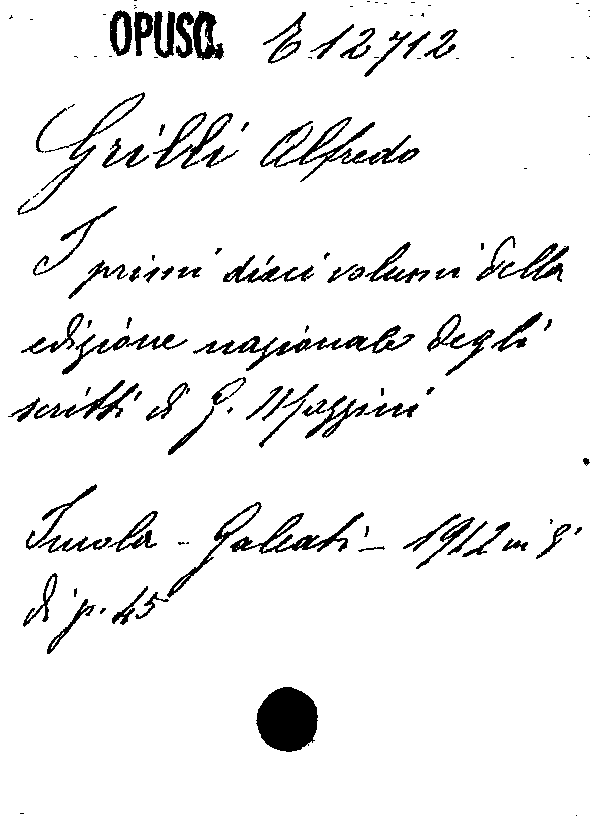 OPUSC. E 12712
Grilli Alfredo
I primi dieci volumi della
edizione nazionale degli
scritti di G. Mazzini
Imola - Galeati - 1912 in 8°
di p. 45